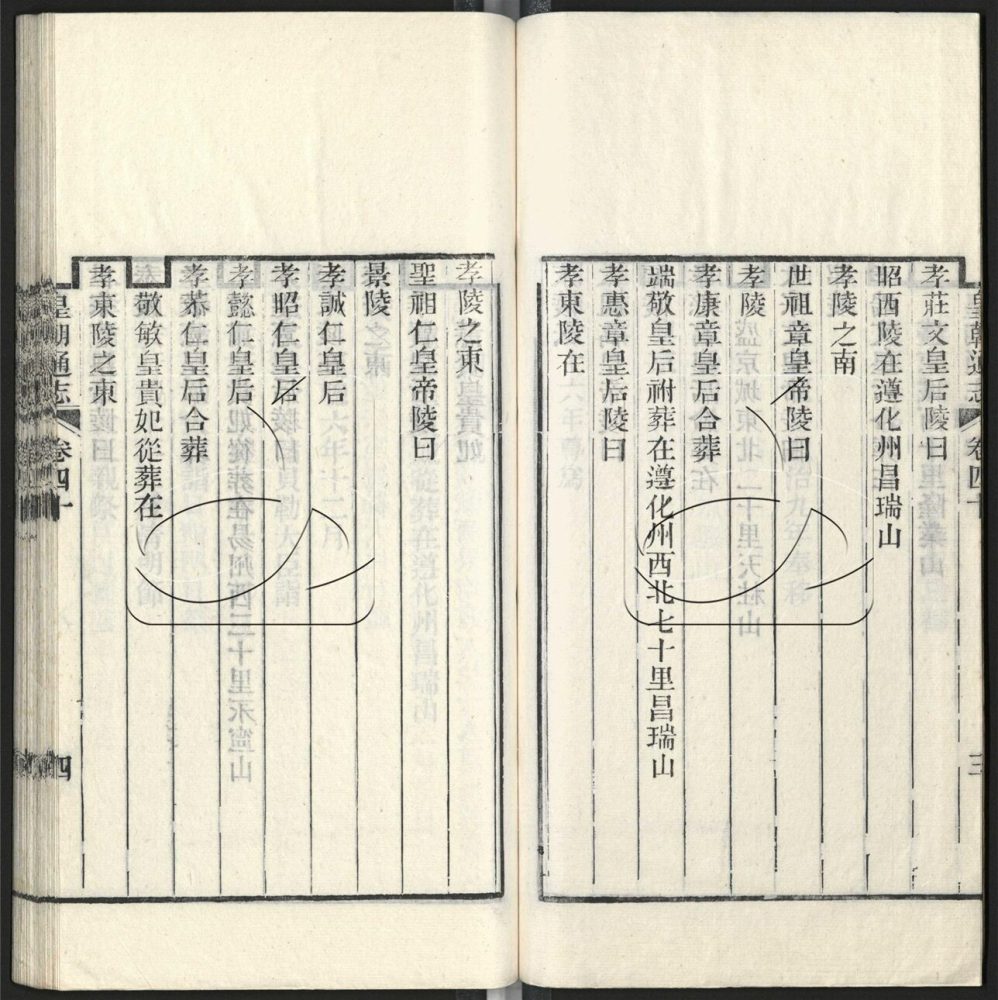 孝莊文皇后陵曰
昭西陵在遵化州昌瑞山
孝陵之南
世祖章皇帝陵曰
孝陵
孝康章皇后合葬
端敬皇后祔葬在遵化州西北七十里昌瑞山
孝惠章皇后陵曰
孝東陵在
孝陵之東
聖祖仁皇帝陵曰
景陵
孝誠仁皇后
孝昭仁皇后
孝懿仁皇后
孝恭仁皇后合葬
敬敏皇貴妃從葬在
孝東陵之東
皇朝通志
卷四十
四